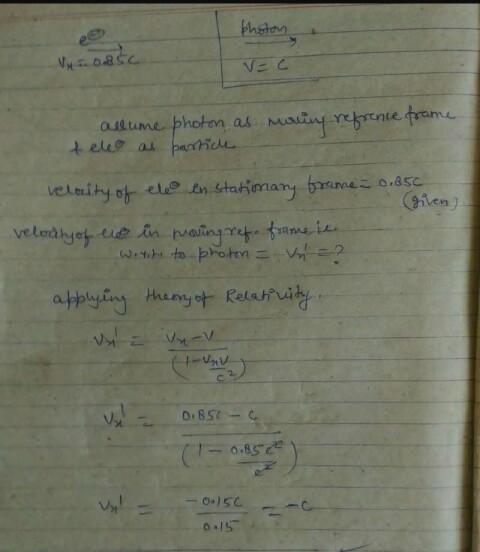 e⊖
Vx = 0.85C
photon
V = C
assume photon as moving refrence frame
& ele⊖ as particle
velocity of ele⊖ in stationary frame = 0.85C
(given)
velocity of ele⊖ in moving ref. frame i.e.
w.r.t. to photon = Vx' = ?
applying theory of Relativity.
Vx' = Vx - V / (1 - VxV/c²)
Vx' = 0.85C - C / (1 - 0.85c²/c²)
Vx' = -0.15C / 0.15 = -C